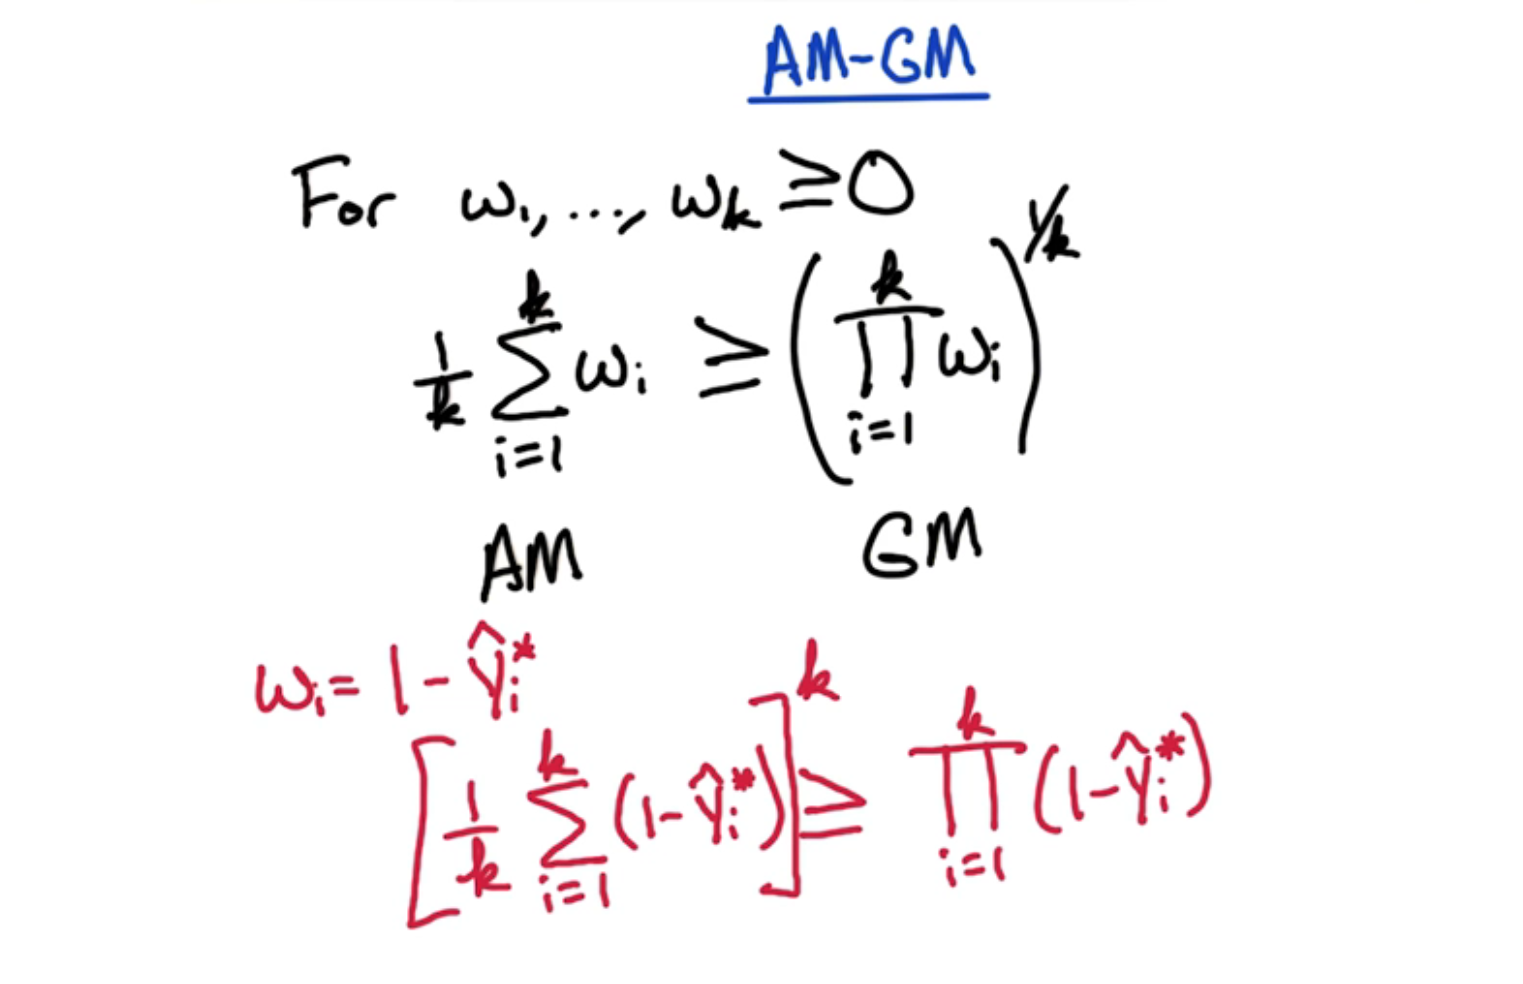 AM-GM
For w₁, ..., w_k ≥ 0
1/k ∑_{i=1}^{k} w_i ≥ (∏_{i=1}^{k} w_i)^{1/k}
AM GM
w_i = 1 - ŷ_i^*
[1/k ∑_{i=1}^{k} (1 - ŷ_i^*)]^k ≥ ∏_{i=1}^{k} (1 - ŷ_i^*)